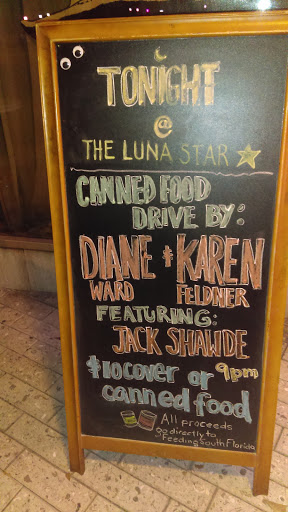 TONIGHT
@
THE LUNA STAR
CANNED FOOD
DRIVE BY:
DIANE & KAREN
WARD FELDNER
FEATURING:
JACK SHAWDE
$10 COVER or 9pm
canned food
All proceeds
go directly to
"Feeding South Florida"